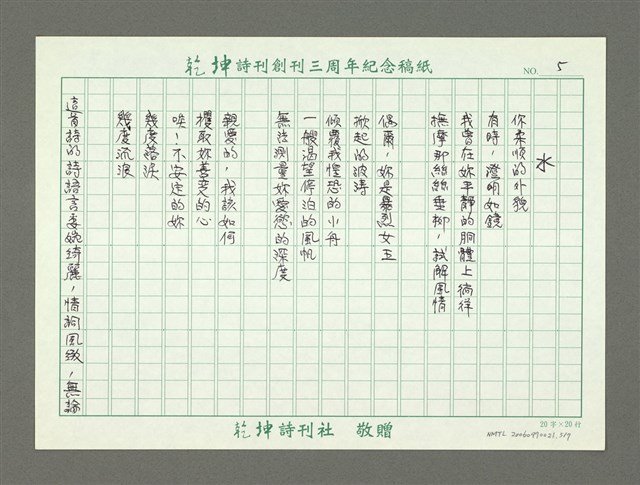 乾坤詩刊創刊三周年紀念稿紙
NO. 5
水
你柔順的外貌
有時，澄明如鏡
我曾在妳平靜的胴體上徜徉
撫摩那絲絲垂柳，試解風情
偶爾，妳是暴烈女王
掀起的波濤
傾覆我惶恐的小舟
一艘渴望停泊的風帆
無法測量妳愛慾的深度
親愛的，我該如何
攫取妳善變的心
唉！不安定的妳
幾度落淚
幾度流浪
這首詩的詩語言委婉綺麗，情詞風緻，無論
乾坤詩刊社 敬贈
20字×20行
NMTL 20060970021.5/7